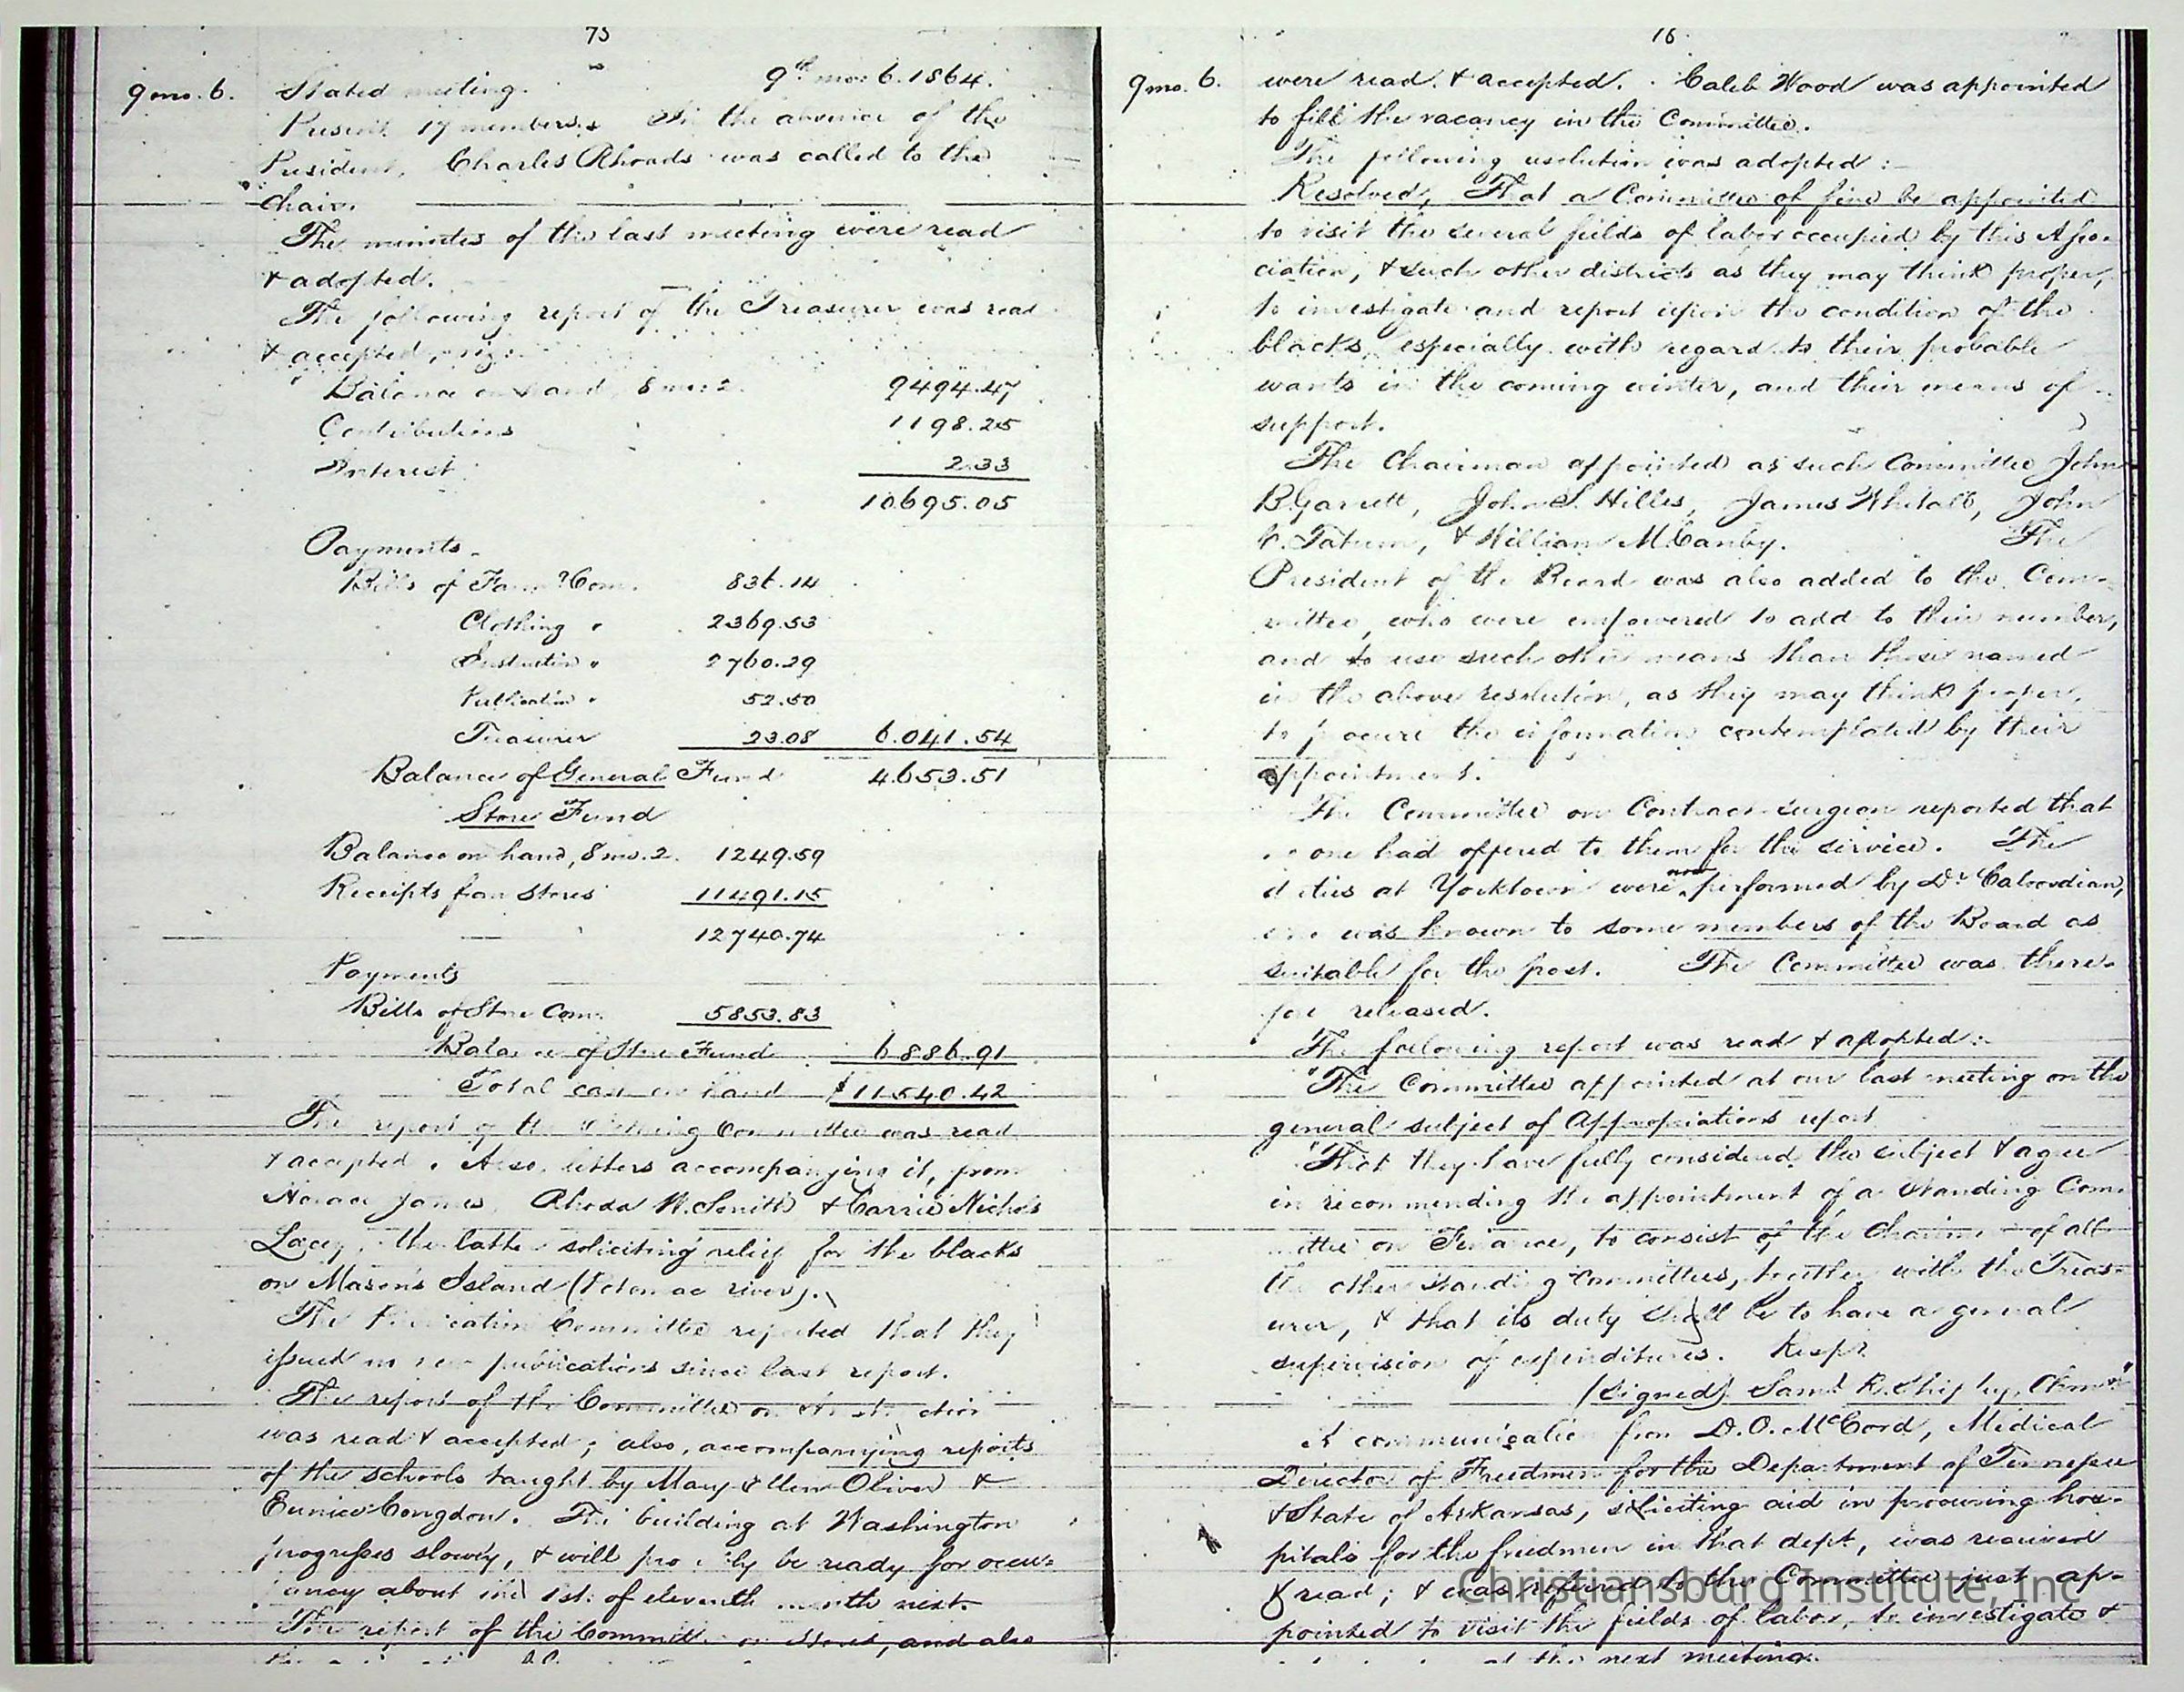 75
9th mo. 6. 1864.
9 mo. 6. Stated meeting.
Present 17 members. In the absence of the
President, Charles Rhoads was called to the
Chair.
The minutes of the last meeting were read
& adopted.
The following report of the Treasurer was read
& accepted, viz:
Balance on hand, 8 mo: 2. 9494.47
Contributions 1198.25
Interest 2.33
10695.05
Payments.
Bills of Com. 836.14
Clothing " 2369.53
Instruction " 2760.29
Publication " 52.50
Treasurer 23.08 6.041.54
Balance of General Fund 4.653.51
Store Fund
Balance on hand, 8 mo. 2. 1249.59
Receipts from Stores 11491.15
12740.74
Payments
Bills of Store Com. 5853.83
Balance of Store Fund 6886.91
Total cash on hand $11540.42
The report of the Clothing Committee was read
& accepted. Also, letters accompanying it, from
Horace James, Rhoda W. Smith & Carrie Nichols
Lacey, the latter soliciting relief for the blacks
on Mason's Island (Potomac river).
The Publication Committee reported that they
issued no new publications since last report.
The report of the Committee on Instruction
was read & accepted; also, accompanying reports
of the schools taught by Mary Ellen Oliver &
Eunice Congdon. The building at Washington
progresses slowly, & will probably be ready for occu-
pancy about the 1st. of eleventh month next.
The report of the Committee on Stores, and also
76
9 mo. 6. were read & accepted. Caleb Wood was appointed
to fill the vacancy in the Committee.
The following resolution was adopted:-
Resolved, That a Committee of five be appointed
to visit the several fields of labor occupied by this Asso-
ciation, & such other districts as they may think proper,
to investigate and report upon the condition of the
blacks, especially with regard to their probable
wants in the coming winter, and their means of
support.
The Chairman appointed as such Committee John
B. Garrett, John S. Hilles, James Whitall, John
C. Tatum, & William M. Canby. The
President of the Board was also added to the Com-
mittee, who were empowered to add to their number,
and to use such other means than those named
in the above resolution, as they may think proper,
to procure the information contemplated by their
appointment.
The Committee on Contract surgeon reported that
no one had offered to them for the service. The
duties at Yorktown were now performed by Dr.
who was known to some members of the Board as
suitable for the post. The Committee was there-
fore released.
The following report was read & adopted:-
"The Committee appointed at our last meeting on the
general subject of Appropriations report
"That they have fully considered the subject & agree
in recommending the appointment of a Standing Com-
mittee on Finance, to consist of the Chairmen of all
the other Standing Committees, together with the Treas-
urer, & that its duty shall be to have a general
supervision of expenditures. Respy.
(Signed) Saml. R. Shipley, Chmn"
A communication from D. O. McCord, Medical
Director of Freedmen for the Department of Tennessee
& State of Arkansas, soliciting aid in procuring hos-
pitals for the freedmen in that dept, was received
& read; & was referred to the Committee just ap-
pointed to visit the fields of labor, to investigate &
at the next meeting.
Christiansburg Institute, Inc